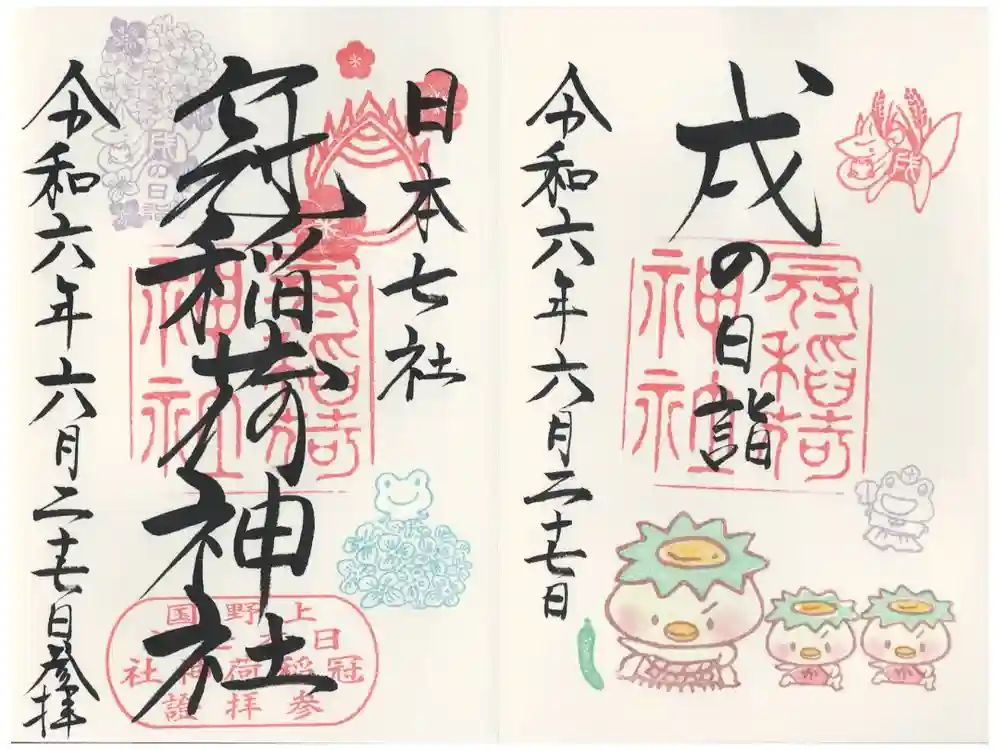 戌の日詣
冠稲荷神社
戌
令和六年六月二十七日
か
か
日本七社
冠稲荷神社
冠稲荷神社
戌の日詣
上野国
日本七社
冠稲荷神社
参拝證
令和六年六月二十七日参拝